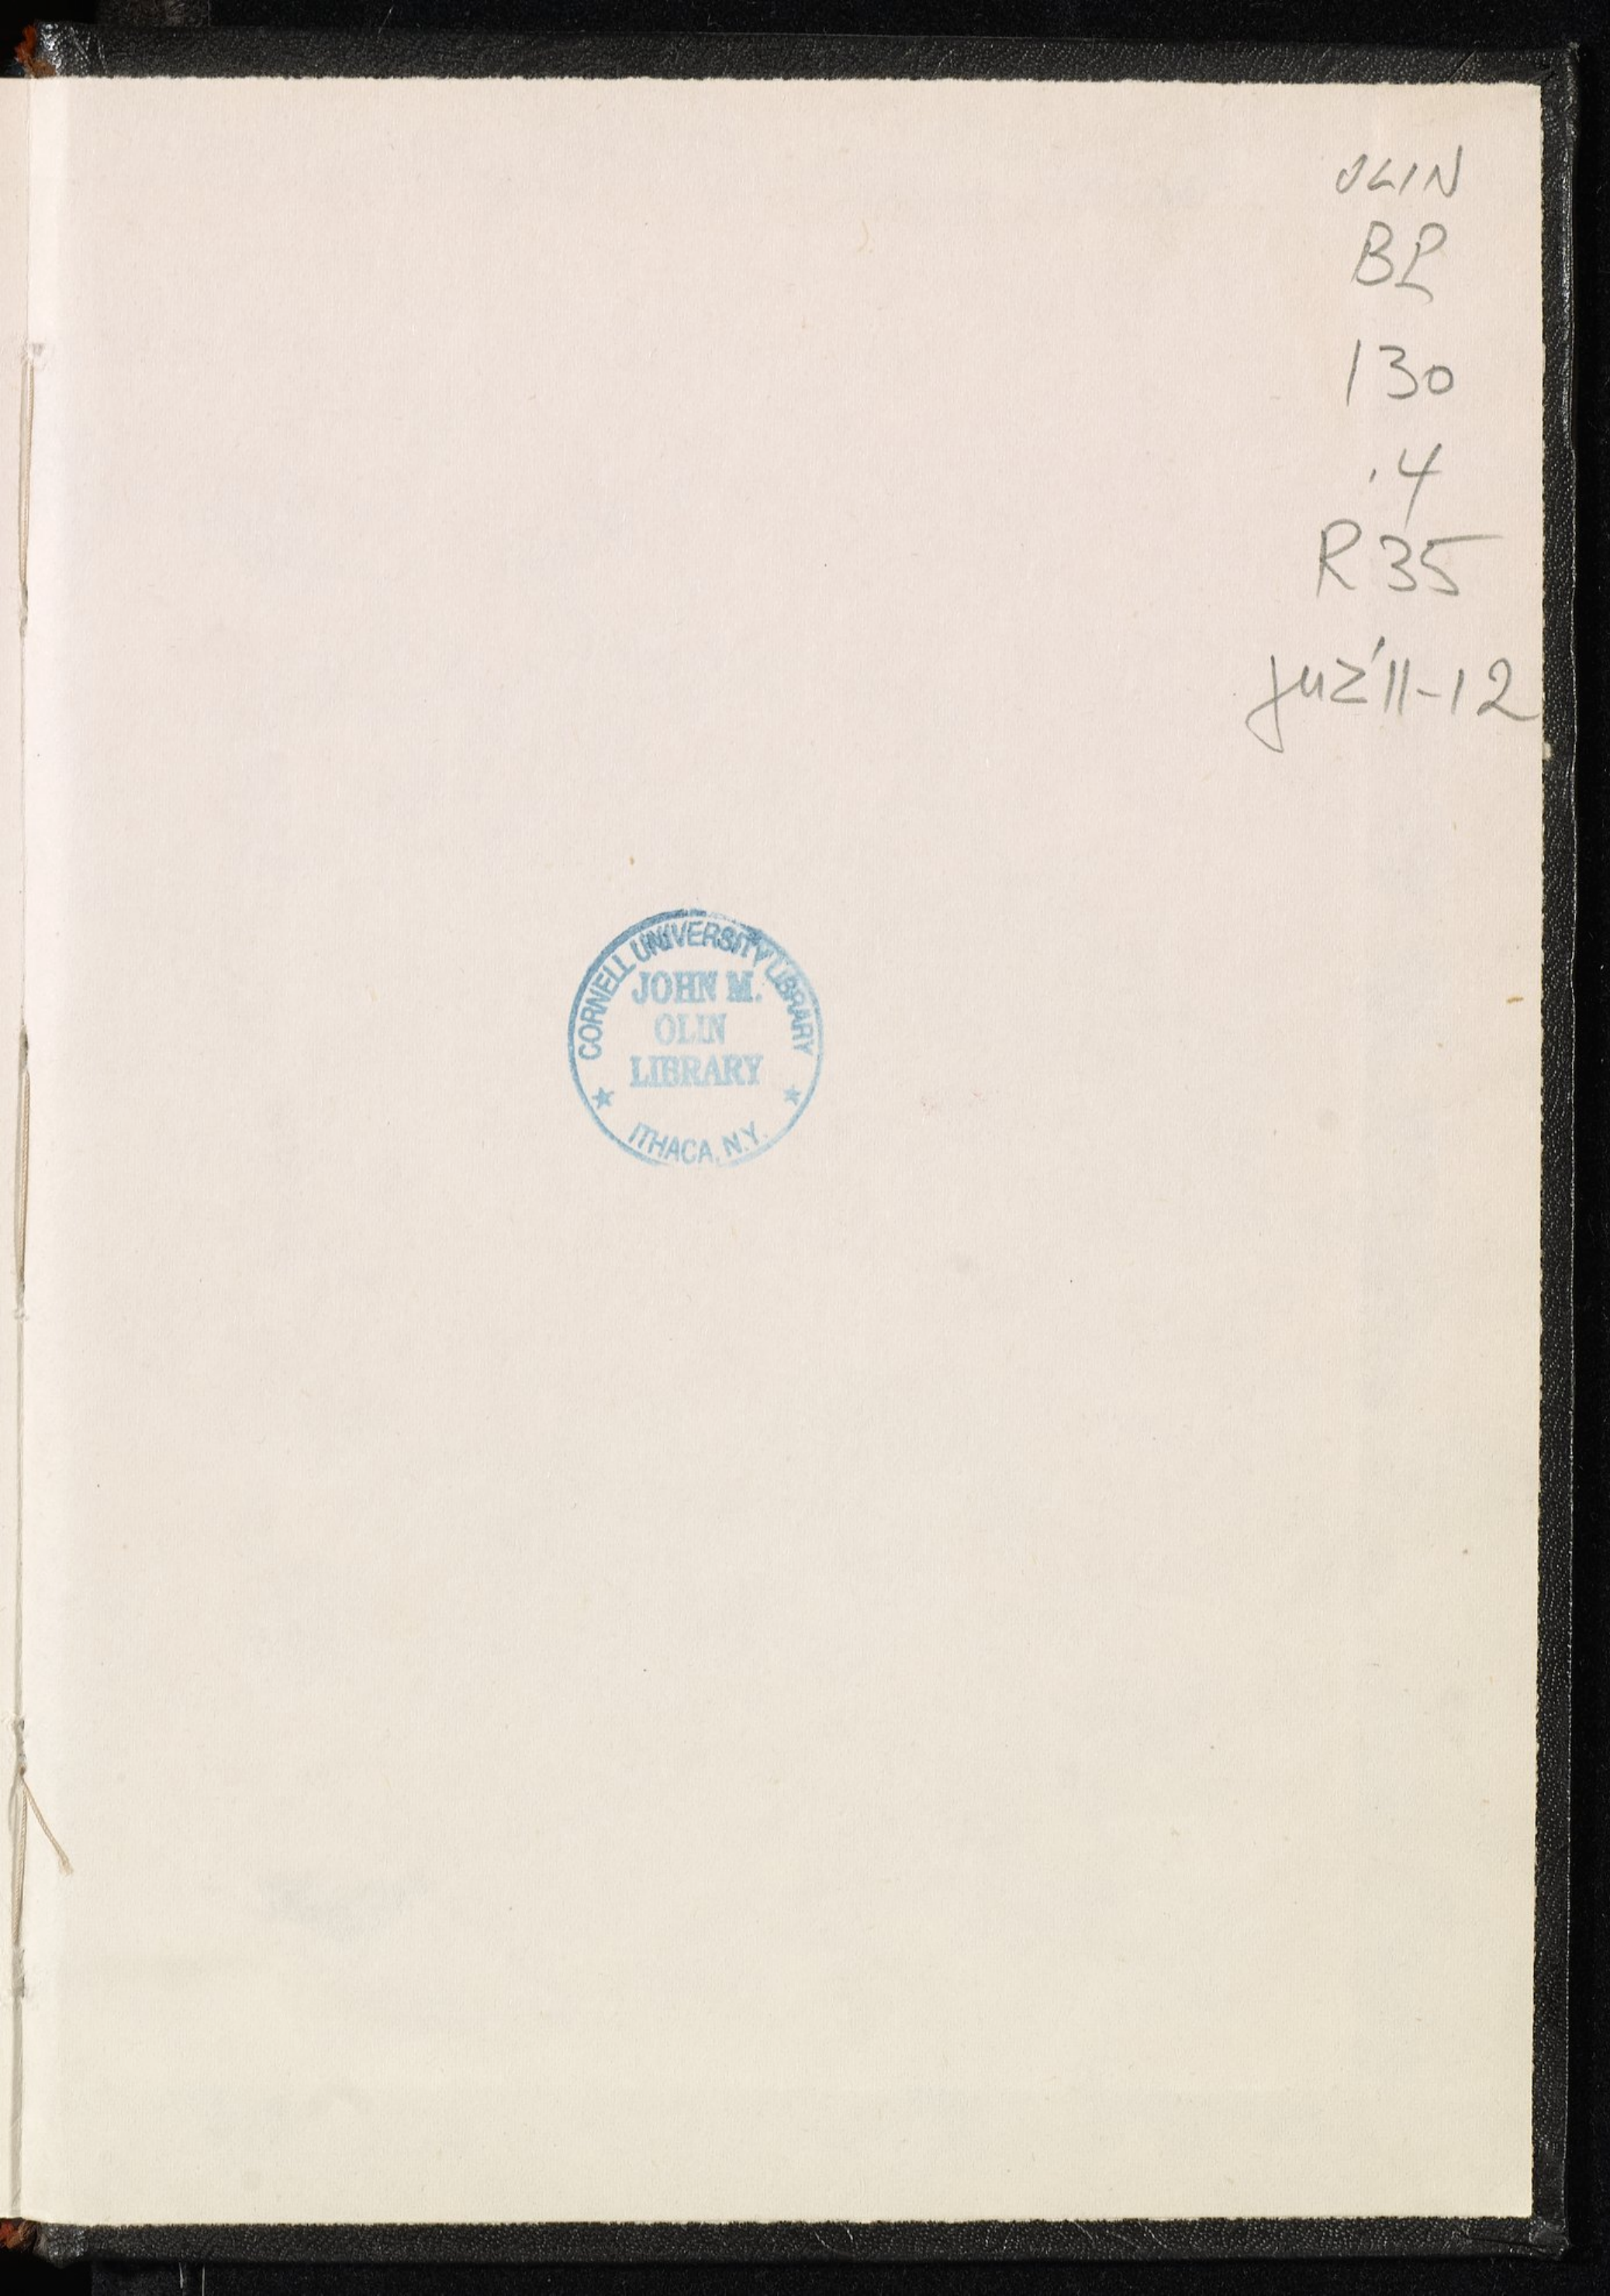 OLIN
BP
130
.4
R35
juz'11-12
CORNELL UNIVERSITY LIBRARY
JOHN M.
OLIN
LIBRARY
ITHACA, N.Y.